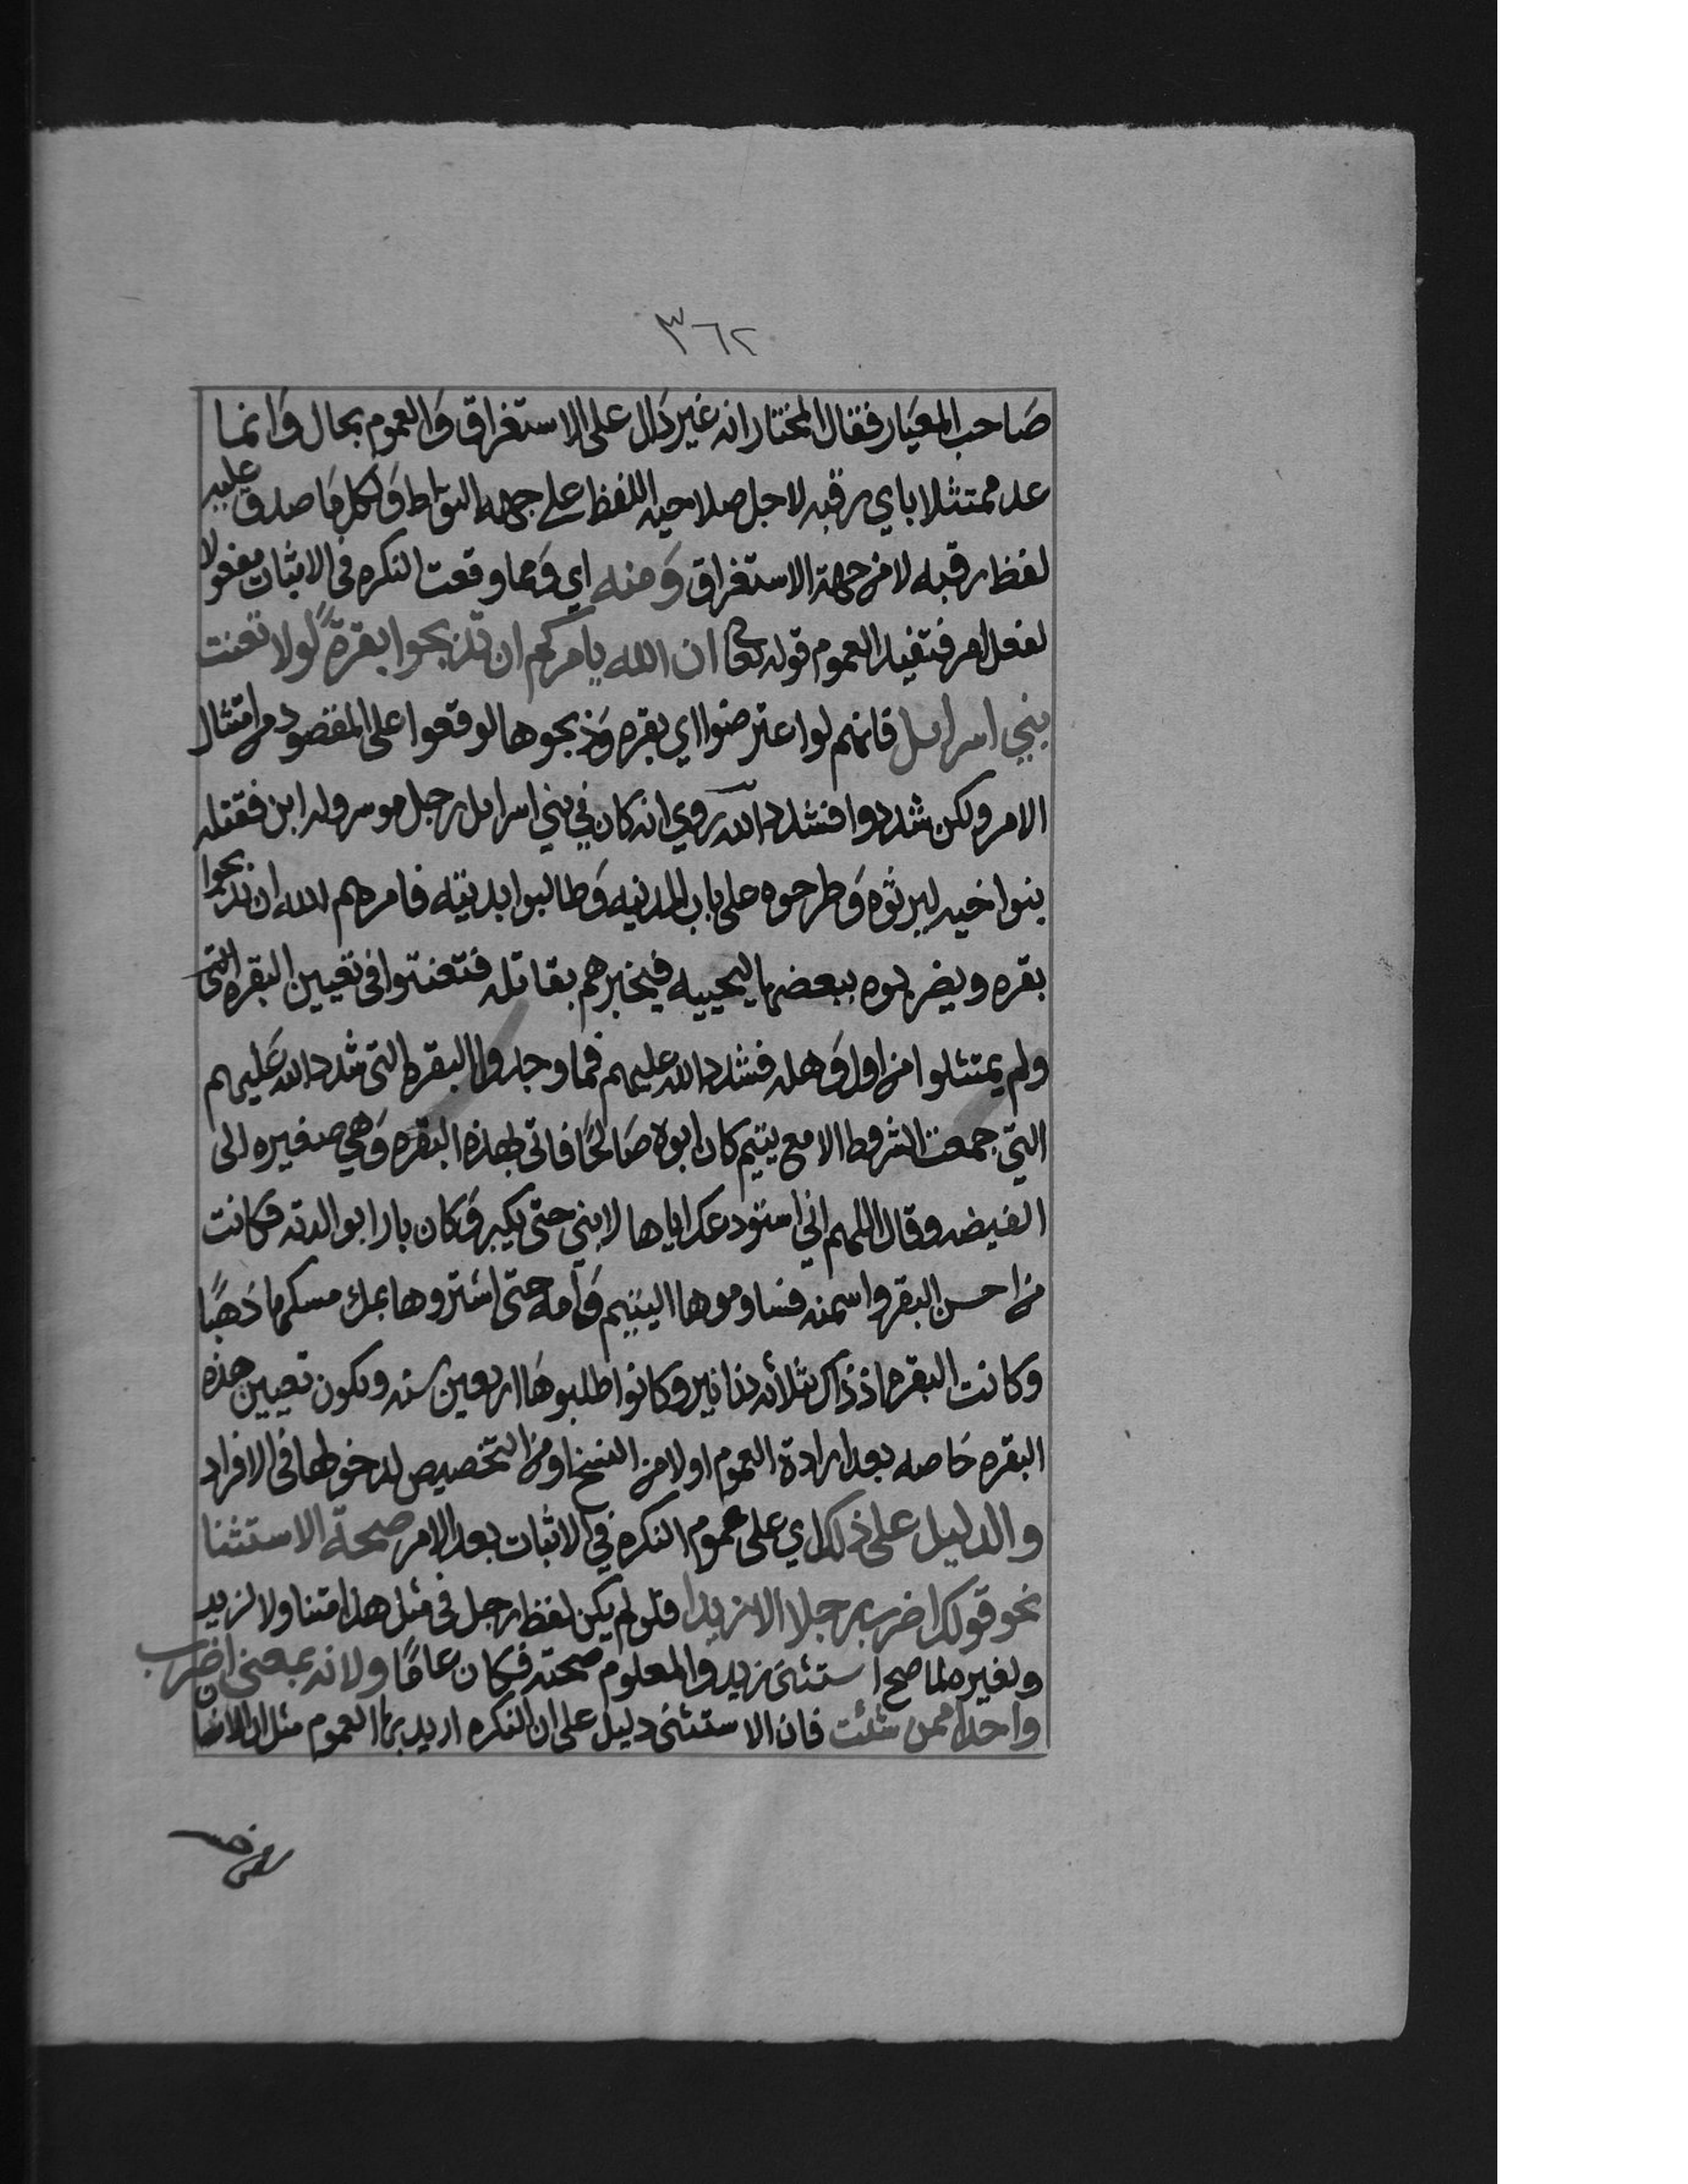 ٣٦٢
صَاحب المعيَار فقال المختار انه غير دَال على الاستغراق وَالعموم بحال وَانما
عد ممتثلا باي رقبه لاجل صلاحيه اللفظ على جهه التواطؤ لكل مَا صدق عليه
لفظ رقبه لا من جهة الاستغراق وَمنه اي وَمما وقعت النكره في الاثبات مفعولا
لفعل امر فتفيد العموم قوله تعا ان الله يامركم ان تذبحوا بقرةً لولا تعنت
بني اسرايل فانهم لو اعترضوا اي بقره وَذبحوها لوقعوا على المقصود من امتثال
الامر ولكن شددوا فشدد الله روي انه كان في بني اسرايل رجل موسر وله ابن فقتله
بنوا اخيه ليرثوه وَطرحوه على باب المدنيه وَطالبوا بديته فامرهم الله ان تذبحوا
بقره ويضربوه ببعضها ليحييه فيخبرهم بقاتله فتعنتوا في تعيين البقره التي
ولم يمتثلوا من اول وَهله فشدد الله عليهم فما وجدوا البقره التي شدد الله عَليهم
التي جمعت الشروط الا مع يتيم كان ابوه صَالحًا فاتى بهذه البقره وَهي صغيره الى
الغيضه وقال اللهم اني استودعك اياها لابني حتى يكبر وَكان بارا بوالدته فكانت
من احسن البقر واسمنه فساوموها اليتيم وَامه حتى اشتروها بملء مسكها ذهبًا
وكانت البقره اذ ذاك بثلاثه دنانير وكانوا طلبوهَا اربعين سنه ويكون تعيين هذه
البقره خَاصه بعد ارادة العموم اولا من النسخ او من التخصيص لدخولها في الافراد
والدليل على ذلك اي على عموم النكره في الاثبات بعد الامر صحة الاستثنا
نحو قولك اضرب رجلا الا زيدا فلو لم يكن لفظ رجل في مثل هذا متناولا لزيد
ولغيره لما صح استثنى زيد والمعلوم صحته فكان عامًا ولانه بمعنى اضرب
واحدا ممن شئت فان الاستثنى دليل على ان النكره اريد بها العموم مثل ان الانسان